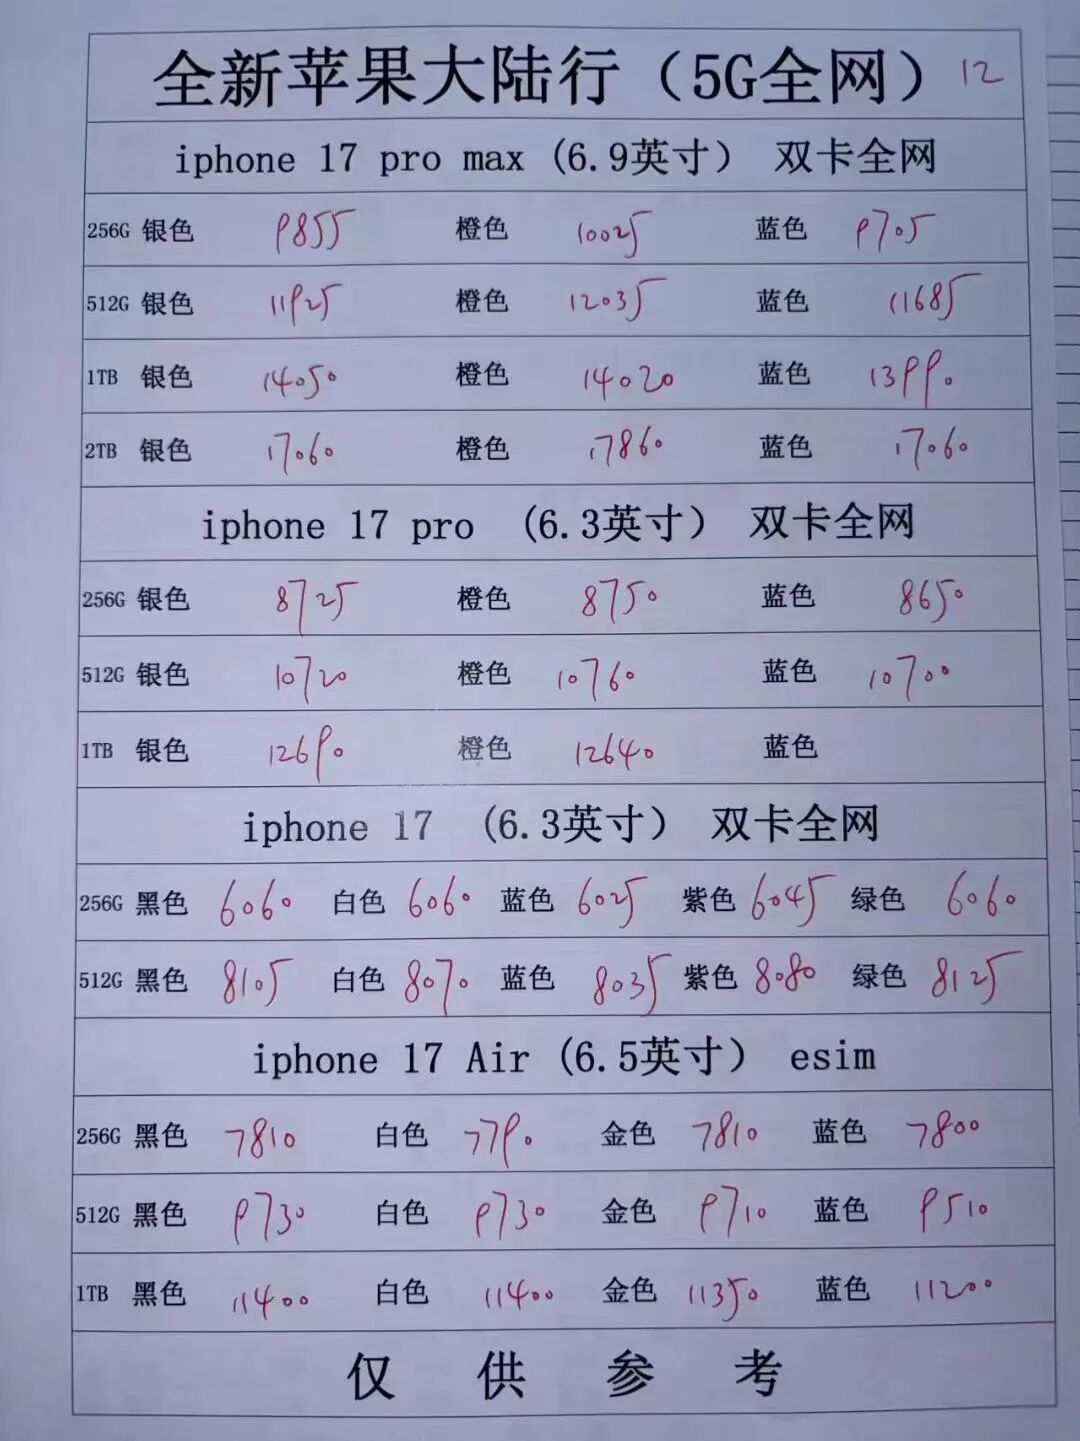 全新苹果大陆行（5G全网） 12
iphone 17 pro max (6.9英寸） 双卡全网
256G 银色 9855 橙色 10025 蓝色 9705
512G 银色 11925 橙色 12035 蓝色 11685
1TB 银色 14050 橙色 14020 蓝色 13990
2TB 银色 17060 橙色 17860 蓝色 17060
iphone 17 pro (6.3英寸） 双卡全网
256G 银色 8725 橙色 8750 蓝色 8650
512G 银色 10720 橙色 10760 蓝色 10700
1TB 银色 12690 橙色 12640 蓝色
iphone 17 (6.3英寸） 双卡全网
256G 黑色 6060 白色 6060 蓝色 6025 紫色 6045 绿色 6060
512G 黑色 8105 白色 8070 蓝色 8035 紫色 8080 绿色 8125
iphone 17 Air (6.5英寸） esim
256G 黑色 7810 白色 7790 金色 7810 蓝色 7800
512G 黑色 9730 白色 9730 金色 9710 蓝色 9510
1TB 黑色 11400 白色 11400 金色 11350 蓝色 11200
仅供参考